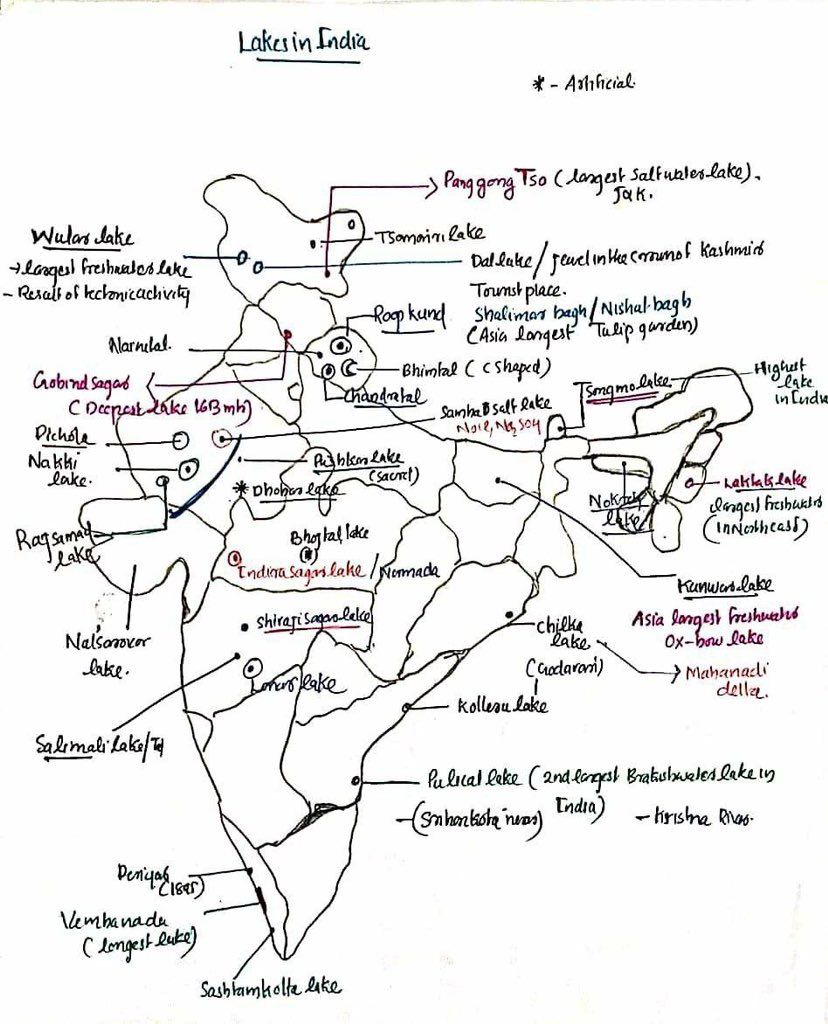 Lakes in India
* - Artificial
Panggong Tso (largest Saltwater lake).
J&K.
Wular lake
→ largest freshwater lake
- Result of tectonic activity
Tsomoriri lake
Dal lake / Jewel in the crown of Kashmir
Tourist place.
Shalimar bagh / Nishal bagh
(Asia longest Tulip garden)
Roop kund
Nainital.
Bhimtal (C shaped)
Gobind sagar
(Deepest lake 163 mt)
Chandratal
Songmo lake
Highest
lake
in India
Sambar salt lake
Pichola
Nakki
lake.
Pushkar lake
(sacred)
* Dhebar lake
Loktak lake
largest freshwater
(in North east)
lake
Rajsamad
lake
Bhojtal lake
Indira sagar lake / Narmada
Kunwar lake
Asia largest freshwater
Ox-bow lake
Nalsarovar
lake.
Shivaji Sagar lake
Chilka
lake
(Godavari)
Mahanadi
delta.
Lonar lake
Kolleru lake
Salimali lake/
Pulicat lake (2nd largest Brakishwater lake in
India)
- (Sriharikota near)
- Krishna River.
Periyar
(1895)
Vembanadu
(longest lake)
Sashtamkotta lake